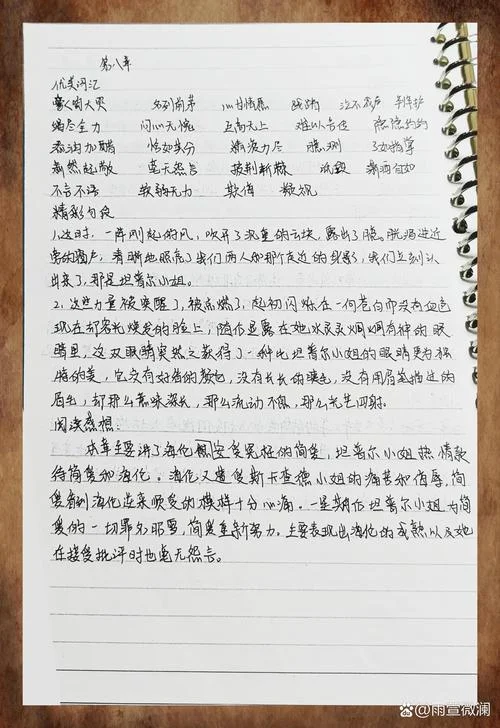 第八章
优美词汇
名列前茅 心甘情愿 踌躇
竭尽全力 问心无愧 至高无上 难以启齿 隐隐约约
添油加醋 恰如其分 精疲力尽 了如指掌
肃然起敬 毫无怨言 披荆斩棘 诋毁
不言不语 软弱无力 欺侮 鄙视
精彩句段
1.这时,一阵刚起的风,吹开了沉重的云块,露出了月亮,月光泻进近
旁的窗户,清晰地照亮了我们两人和那个走近的身影,我们立刻认
出来了,那是坦普尔小姐。
2.这些力量被唤醒了,被点燃了,起初闪烁在一向苍白而没有血色
现在却容光焕发的脸上,随后显露在她水灵灵炯炯有神的眼
睛里,这双眼睛突然之间获得了一种比坦普尔小姐的眼睛更为独
特的美,它没有好看的颜色,没有长长的睫毛,没有用眉笔描过的
眉毛,却那么意味深长,那么流动不息,那么光芒四射。
阅读感想:
本章主要讲了海伦安慰哭泣的简爱,坦普尔小姐热情款
待简爱和海伦。海伦又遭受斯卡查德小姐的痛苦和侮辱,简
爱看到海伦逆来顺受的模样十分心痛。一星期后坦普尔小姐为简
爱的一切罪名昭雪,简爱重新努力。主要表现出海伦的成熟以及她
在接受批评时也毫无怨言。
@雨宣微澜